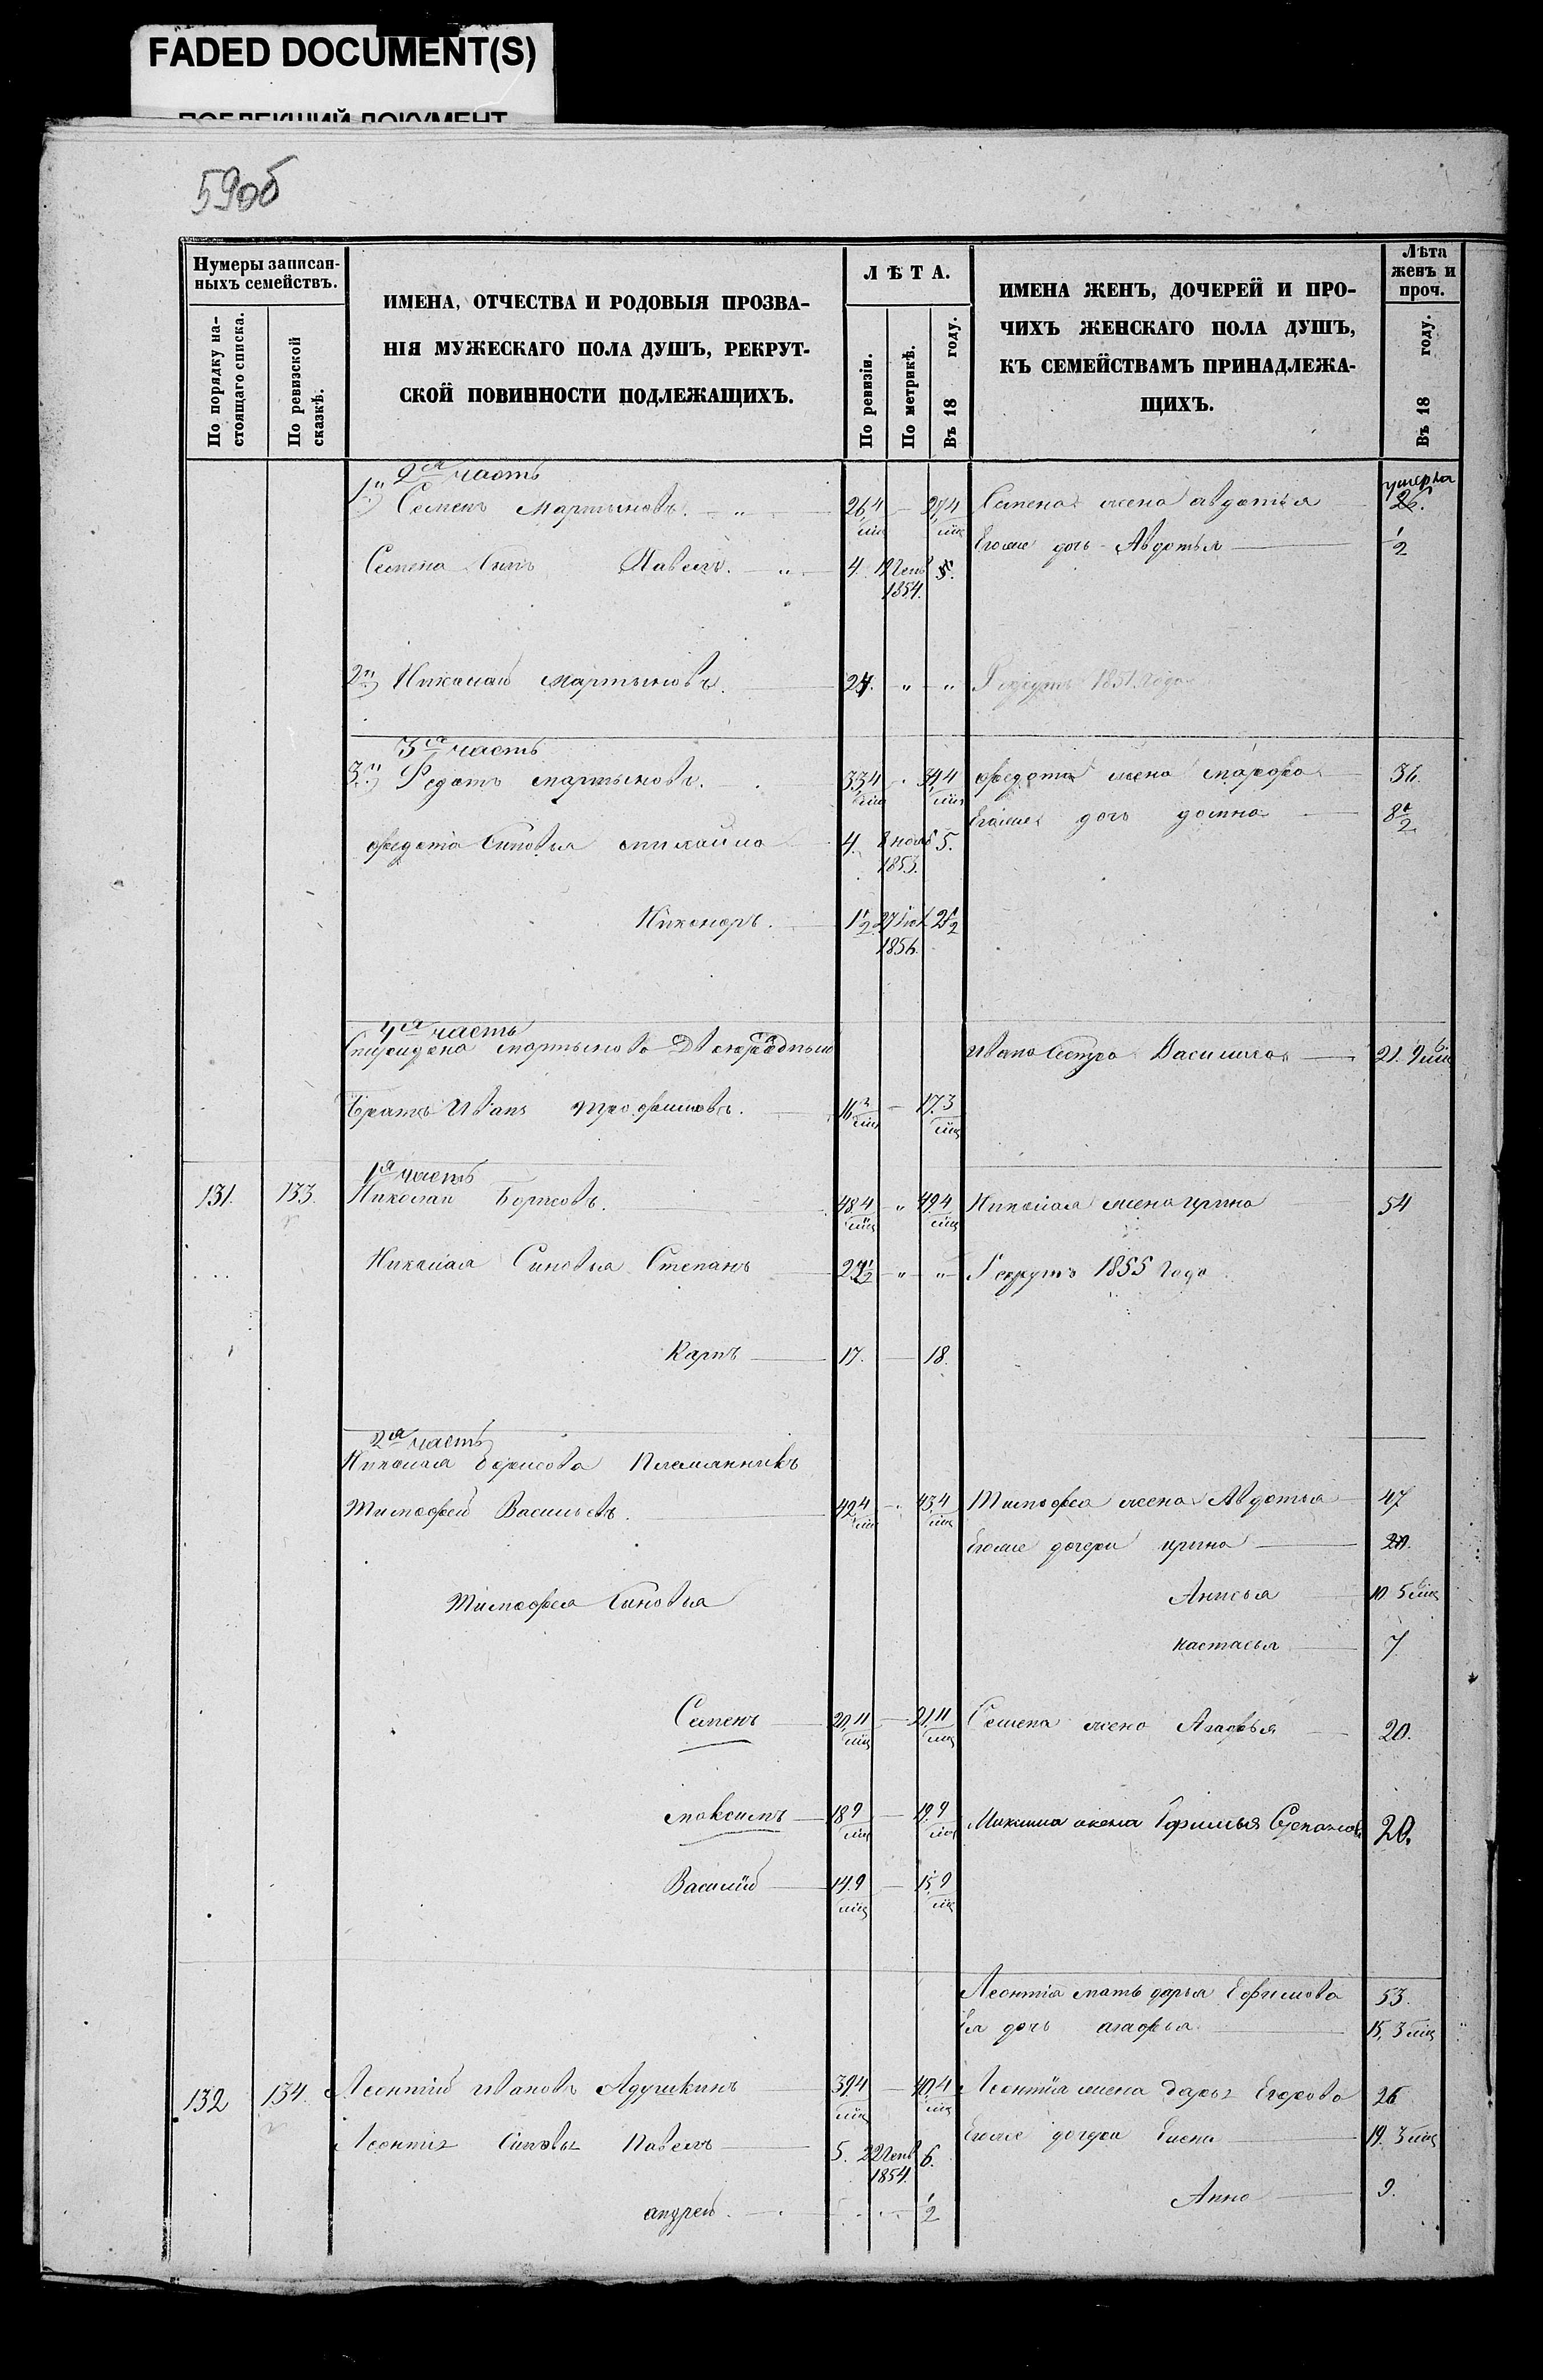 FADED DOCUMENT(S)
ПОБЛЕКШИЙ ДОКУМЕНТ
59об
Нумеры записан-
ныхъ семействъ.
По порядку на-
стоящаго списка.
По ревизской
сказкѣ.
ИМЕНА, ОТЧЕСТВА И РОДОВЫЯ ПРОЗВА-
НІЯ МУЖЕСКАГО ПОЛА ДУШЪ, РЕКРУТ-
СКОЙ ПОВИННОСТИ ПОДЛЕЖАЩИХЪ.
ЛѢТА.
По ревизіи.
По метрикѣ.
Въ 18 году.
ИМЕНА ЖЕНЪ, ДОЧЕРЕЙ И ПРО-
ЧИХЪ ЖЕНСКАГО ПОЛА ДУШЪ,
КЪ СЕМЕЙСТВАМЪ ПРИНАДЛЕЖА-
ЩИХЪ.
Лѣта
женъ и
проч.
Въ 18 году.
2я часть
1й) Семенъ Мартыновъ. 26,4 мц 27,4 мц Семена жена авдотья умерла 26.
Егоже дочь Авдотья 1/2
Семена Сынъ Павелъ. 4. 12 генв 1854. 5.
2й) Николай мартыновъ. 24. " " Рекрутъ 1851. Года
3я часть
3й) Федотъ мартыновъ. 33,4 мц 34,4 мц федота жена марфа 36.
Егоже дочь домна 8 1/2
федота Сыновья михайла 4. 8 нояб 1853. 5.
Никоноръ. 1 1/2 1856. 2 1/2
4я часть
Спиридона мартынова Двоюродный Ивана Сестра Василиса 21. 9 мц
Братъ Иванъ трофимовъ. 16,3 мц 17,3 мц
1я часть
131. 133. Николай Борисовъ. 48,4 мц " 49,4 мц Николая жена ирина 54
Николая Сыновья Степанъ 24 1/2 " " Рекрутъ 1855 Года
Карпъ 17. 18.
2я часть
Николая борисова Племянникъ
Тимофей Васильевъ. 42,4 мц 43,4 мц Тимофея жена Авдотья 47
Егоже дочери ирина 20.
Тимофея Сыновья Анисья 10. 5 мц
настасья 7
Семенъ 20,11 мц 21,11 мц Семена жена Агафья 20.
максимъ 18,9 мц 19,9 мц Максима жена Степанова 20.
Василий 14,9 мц 15,9 мц
Леонтія мать дарья Ефимова 53.
Ея дочь агафья 15, 3 мц
132 134. Леонтий ивановъ Адушкинъ 39,4 мц 40,4 мц Леонтія жена дарья Егорова 26
Леонтія Сыновья Павелъ 5. 22 генв 1854. 6. Егоже дочери Елена 19. 3 мц
андрей. 1/2 Анна 9.